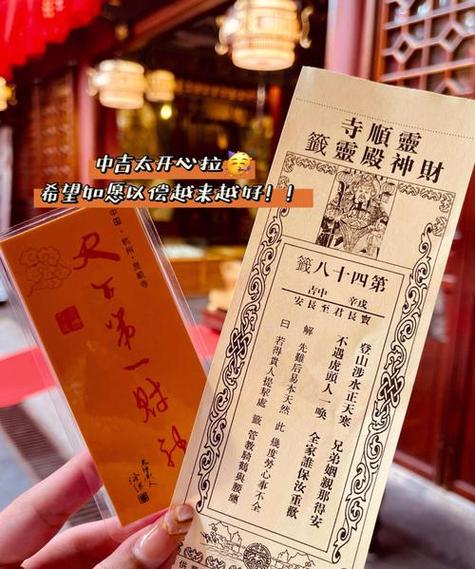 中吉太开心拉🥳
希望如愿以偿越来越好！！
靈順寺
財神殿靈籤
第四十八籤
戊辛 中吉
竇長君至長安
登山涉水正天寒 兄弟姻親那得安
不遇虎頭人一喚 全家誰保汝重歡
解 先難后易本天然 此 幾度勞心事不全
曰 若得貴人提挈處 籤 管教騎鶴與腰纏
中国·杭州·灵順寺
天下第一财神